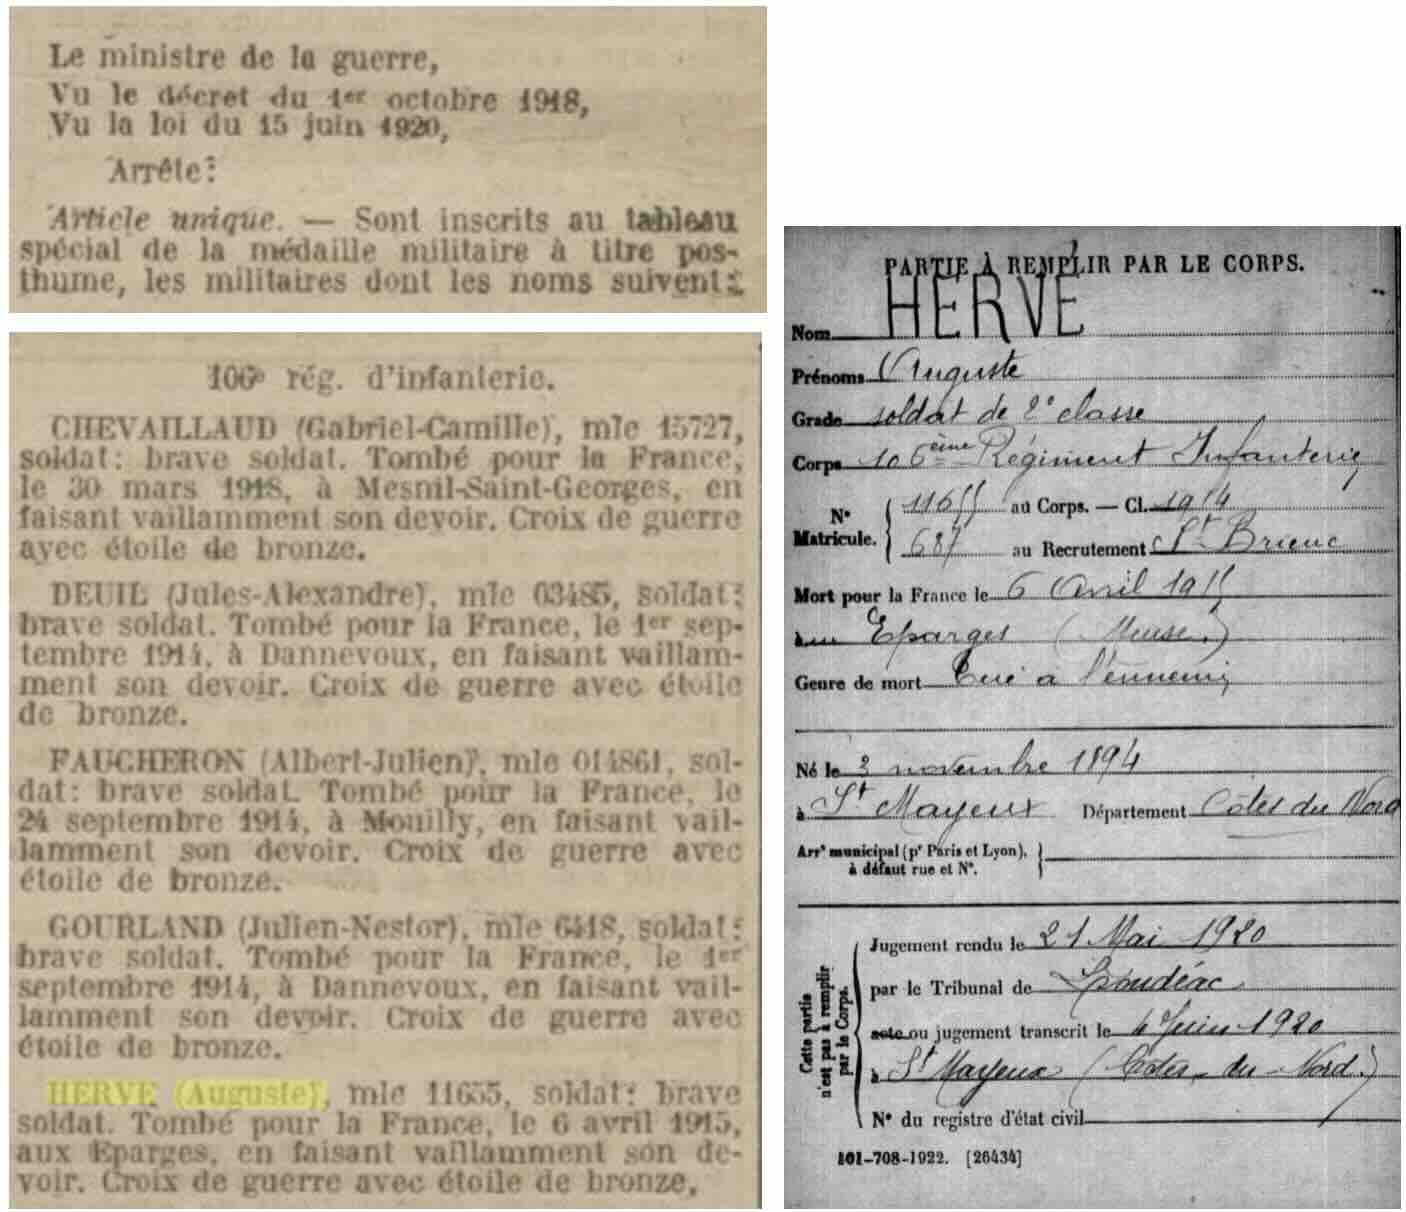 Le ministre de la guerre,
Vu le décret du 1er octobre 1918,
Vu la loi du 15 juin 1920,
Arrête:
Article unique. — Sont inscrits au tableau
spécial de la médaille militaire à titre pos-
thume, les militaires dont les noms suivent:
106e rég. d'infanterie.
CHEVAILLAUD (Gabriel-Camille), mle 15727,
soldat: brave soldat. Tombé pour la France,
le 30 mars 1918, à Mesnil-Saint-Georges, en
faisant vaillamment son devoir. Croix de guerre
avec étoile de bronze.
DEUIL (Jules-Alexandre), mle 03485, soldat:
brave soldat. Tombé pour la France, le 1er sep-
tembre 1914, à Dannevoux, en faisant vaillam-
ment son devoir. Croix de guerre avec étoile
de bronze.
FAUCHERON (Albert-Julien), mle 014861, sol-
dat: brave soldat. Tombé pour la France, le
24 septembre 1914, à Mouilly, en faisant vail-
lamment son devoir. Croix de guerre avec
étoile de bronze.
GOURLAND (Julien-Nestor), mle 6418, soldat:
brave soldat. Tombé pour la France, le 1er
septembre 1914, à Dannevoux, en faisant vail-
lamment son devoir. Croix de guerre avec
étoile de bronze.
HERVE (Auguste), mle 11655, soldat: brave
soldat. Tombé pour la France, le 6 avril 1915,
aux Eparges, en faisant vaillamment son de-
voir. Croix de guerre avec étoile de bronze.
PARTIE À REMPLIR PAR LE CORPS.
Nom HERVÉ
Prénoms Auguste
Grade soldat de 2e classe
Corps 106ème Régiment Infanterie
N° Matricule. 11655 au Corps. — Cl. 1914
687 au Recrutement St Brieuc
Mort pour la France le 6 Avril 1915
Eparges (Meuse)
Genre de mort Tué à l'ennemi
Né le 3 novembre 1894
à St Mayeux Département Côtes du Nord
Arrt municipal (pr Paris et Lyon),
à défaut rue et N°.
Cette partie
n'est pas à remplir
par le Corps.
Jugement rendu le 21 Mai 1920
par le Tribunal de Loudéac
acte ou jugement transcrit le 4 Juin 1920
à St Mayeux (Côtes du Nord)
N° du registre d'état civil
101-708-1922. [26434]